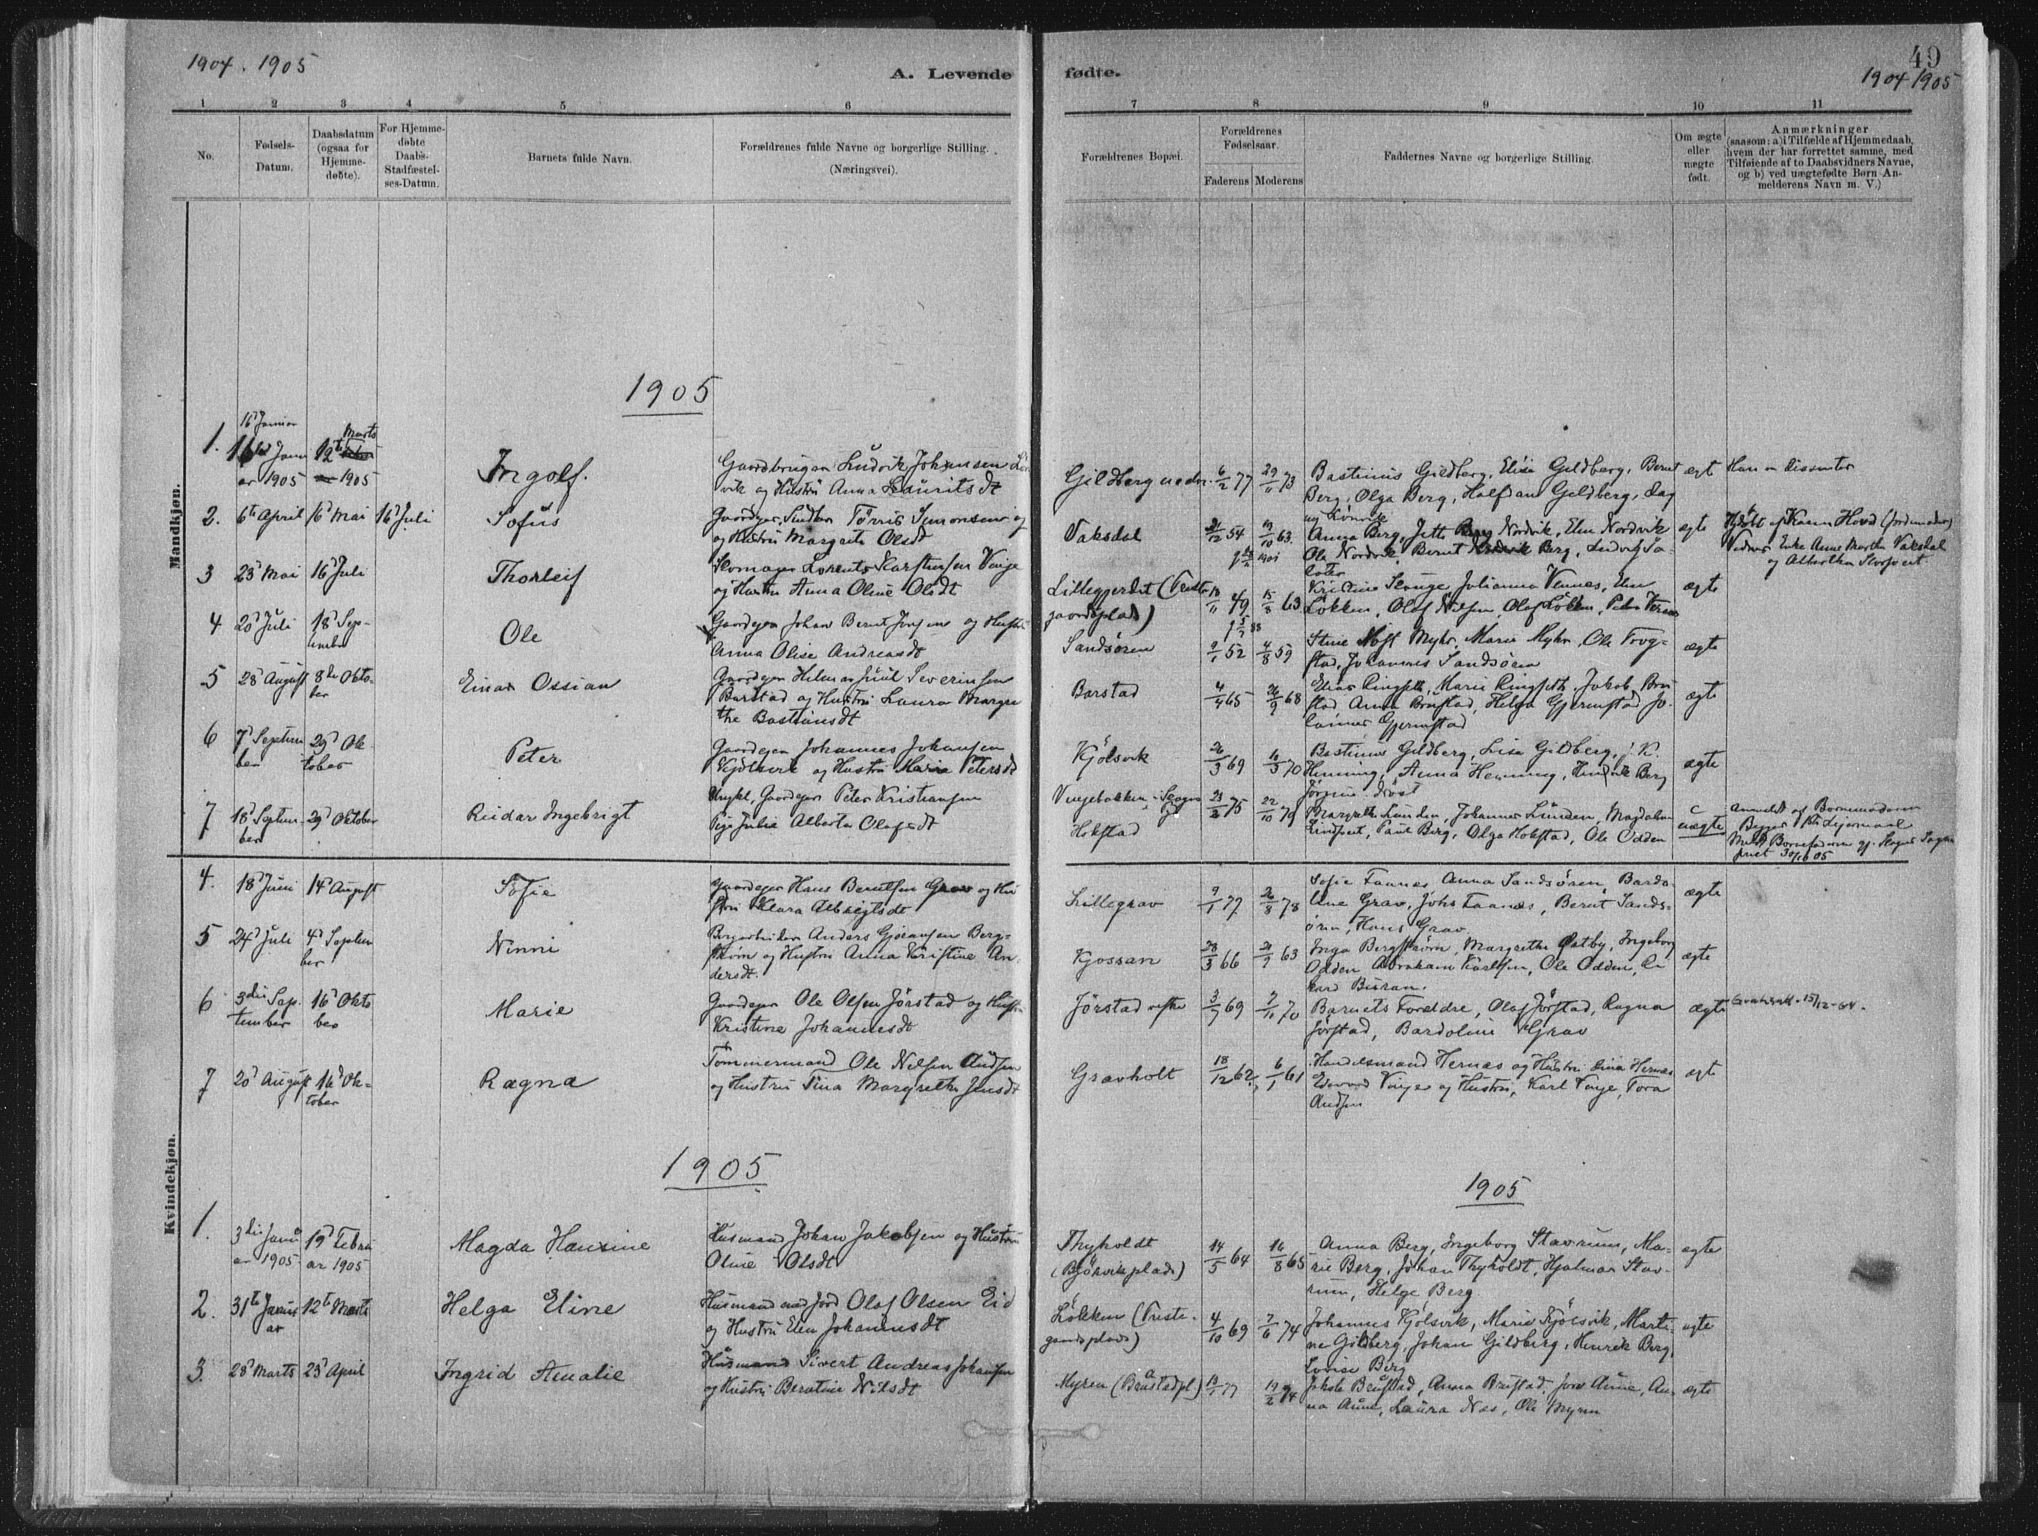 1904. 1905
A. Levende
fødte.
49
1904 1905
1 2 3 4 5 6
7 8 9 10 11
No.
Fødsels-
Datum.
Daabsdatum
(ogsaa for
Hjemme-
døbte).
For Hjemme-
døbte
Daabs-
Stadfæstel-
ses-Datum.
Barnets fulde Navn.
Forældrenes fulde Navne og borgerlige Stilling.
(Næringsvei).
Forældrenes Bopæl.
Forældrenes
Fødselsaar.
Faderens
Moderens
Faddernes Navne og borgerlige Stilling.
Om ægte
eller
uægte
født.
Anmærkninger
(saasom: a) i Tilfælde af Hjemmedaab,
hvem der har forrettet samme, med
Tilføiende af to Daabsvidners Navne,
og b) ved uægtefødte Børn An-
melderens Navn m. V.)
Mandkjøn.
1905
1.
16d Januar
ar 1905
12te Marts
1905
Ingolf.
Gaardbruger Ludvik Johansen
vik og Hustru Anna Lauritsdt
Gildberg nedr.
6/2 77
29/11 73
Bastinius Gildberg, Elisa Gildberg, Bernt
Berg, Olga Berg, Halfdan Gildberg, Dag
ægt
Han er dissenter
2.
6te April
6d Mai
16d Juli
Sofus
Gaardeger, Tørris Simonsen og
og Hustru Margrete Olsdt
Vaksdal
54
19/10 63.
Anna Berg, Jette Nordvik, Elen Nordvik
Ole Nordvik, Bernt Berg, Ludvig
ægte
Hjdøbt af Karen Hovd (Jordemoder)
Vidner Enke Anne Martha Vaksdal
og Albertha
3
23d Mai
16d Juli
Thorleif
Skomager Lorents Karstensen Vinge
og Hustru Anna Oline Olsdt
Lillegjerdet (Truste-
gaardsplads)
49
15/8 63
Kristine Slunge, Julianna Vennes, Elen
Løkken, Olaf Nilsen, Olaf Løkken, Peter Vennes
ægte
4
20d Juli
18d Sep-
tember
Ole
Gaardeger Johan Bernt Jensen og Hustru
Anna Olise Andreasdt
Sandsøren
9/1 52
4/8 59
Stine Moff Myhr, Marie Myhr, Ole Trog-
stad, Johannes Sandsøren
ægte
5
28d August
8de Okto-
ber
Einar Ossian
Gaardeger Helmer Juul Severinsen
Barstad og Hustru Laura Margre
the Bastiansdt
Barstad
4/4 65
26/9 68
Elias Ringseth, Marie Ringseth, Jakob Bru
stad, Anna Brustad, Helga Gjermstad, Jo-
hannes Gjermstad
ægte
6
7d Septem
ber
29d Ok-
tober
Peter
Gaardeger Johannes Johansen
Kjølsvik og Hustru Maria Petersdt
Kjølsvik
26/3 69
10/5 70
Bastinus Gildberg, Lisa Gildberg, J. K.
Henning, Anna Henning, Henrik Berg
ægte
7
18d Septem-
ber
29d Oktober
Reidar Ingebrigt
Ungkl, Gaardeger Peter Kristiansen
Pige Julia Alberta Olafsdt
Vingebakken i Skogn
Hokstad
23/2 75
22/10 79
Margrethe Lunden, Johannes Lunden, Magdalene
Lindset, Paul Berg, Olga Hokstad, Ole Odden
uægte
Anmeldt af Barnemoderen
Begges 1ste Leiermaal
Meldt Barnefaderen gj. Skogns Sogne
prest 30/10 05
Kvindekjøn.
4.
18d Juni
14d August
Sofie
Gaardeger Hans Berntsen Grav og Hu
stru Klara Albrigtsdt
Lillegrav
9/1 77
26/8 78
Sofie Faanes, Anna Sandsøren, Bardo-
line Grav, Johs Faanes, Bernt Sands-
øren, Hans Grav
ægte
5
24d Juli
4d Septem
ber
Ninni
Bergarbeider Anders Gøransen Berg-
strøm og Hustru Anna Kristine An-
dersdt
Kjossan
28/3 66
21/9 63
Inga Bergstrøm, Margrethe Østby, Ingeborg
Odden, Abraham Karlsen, Ole Odden,
ægte
6
3die Sep
tember
16d Okto
ber
Marie
Gaardeger Ole Olsen Jørstad og Hustru
Kristine Johannesdt
Jørstad østre
3/7 69
7/11 70
Barnets Forældre, Olaf Jørstad, Ragna
Jørstad, Bardoline Grav
ægte
7
20d August
16d Ok-
tober
Ragna
Tømmermand Ole Nilsen Audsen
og Hustru Tina Margrethe Jensdt
Gravholt
18/12 62
6/1 61
Handelsmand Hernæs og Hustru Lina Hernæs
Edevard Vinge og Hustru, Karl Vinge, Tora
Audsen
ægt
1905
1905
1.
3die Janu
ar 1905
19d Febru
ar 1905
Magda Hansine
Husmand Johan Jakobsen og Hustru
Oline Olsdt
Thyholdt
(Bjørvik plads)
14/5 64
16/8 65
Anna Berg, Ingeborg Stavrum, Ma-
rie Berg, Johan Thyholdt, Hjalmar Stav-
rum, Helge Berg
ægte
2.
31te Janu
ar
12te Marts
Helga Eline
Husmand med Jord Olaf Olsen Eid
og Hustru Elen Johannesdt
Løkken (Truste-
gaardsplads)
4/10 69
7/6 74
Johannes Kjølsvik, Marie Kjølsvik, Marti-
ne Gildberg, Johan Gildberg, Henrik Berg,
Lovise Berg
ægte
3.
28d Marts
23d April
Ingrid Amalie
Husmand Sivert Andreas Johansen
og Hustru Berntine Nilsdt
Myren (Brustadpl)
77
19/2 74
Jakob Brustad, Anna Brustad, Jon Aune, An-
na Aune, Laura Næs, Ole Myren
ægte